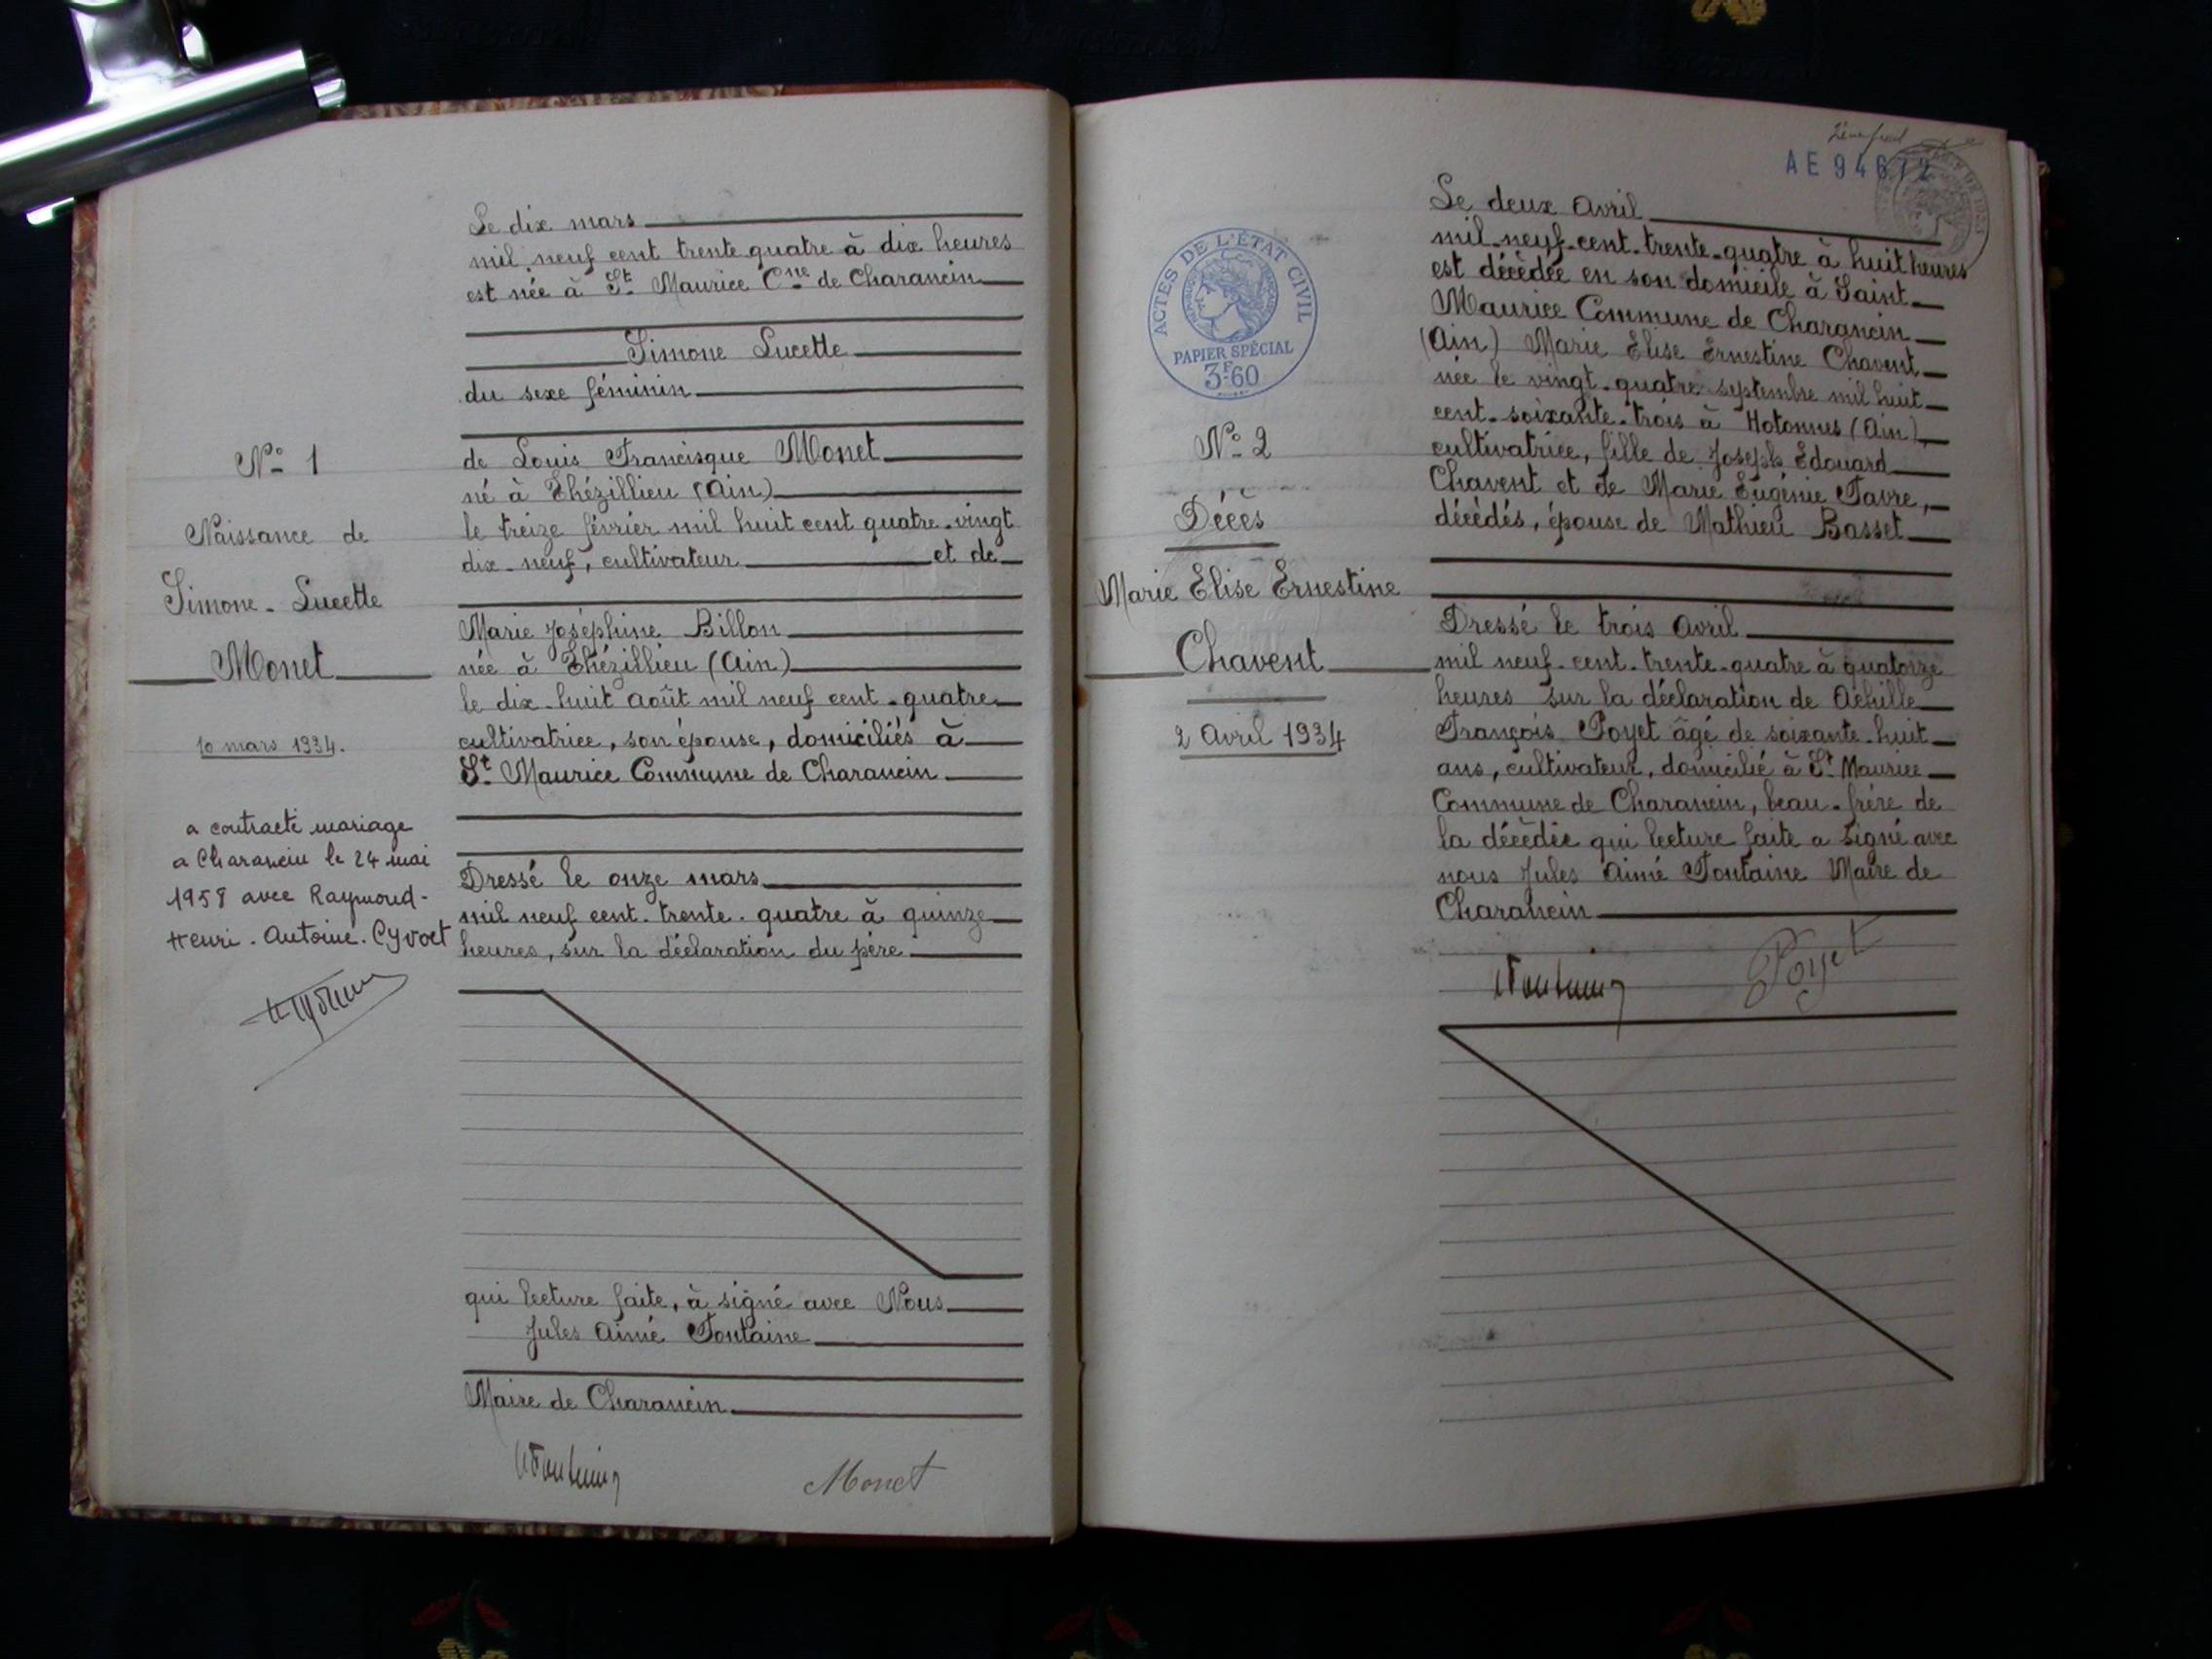 N° 1
Naissance de
Simone - Lucette
Monet
10 mars 1934.
a contracté mariage
a Charancin le 24 mai
1958 avec Raymond-
Henri - Antoine - Cyvoct
Le dix mars
mil neuf cent trente quatre à dix heures
est née à St Maurice Cne de Charancin
Simone Lucette
du sexe féminin
de Louis Francisque Monet
né à Thézillieu (Ain)
le treize février mil huit cent quatre-vingt
dix-neuf, cultivateur et de
Marie Joséphine Billon
née à Thézillieu (Ain)
le dix-huit Août mil neuf cent-quatre
cultivatrice, son épouse, domiciliés à
St Maurice Commune de Charancin
Dressé le onze mars
mil neuf cent-trente-quatre à quinze
heures, sur la déclaration du père
qui lecture faite, à signé avec Nous
Jules Aimé Fontaine
Maire de Charancin
Monet
AE 94672
ACTES DE L'ÉTAT CIVIL
PAPIER SPÉCIAL
3F.60
N° 2
Décès
Marie Elise Ernestine
Chavent
2 Avril 1934
Le deux Avril
mil-neuf-cent-trente-quatre à huit heures
est décédée en son domicile à Saint
Maurice Commune de Charancin
(Ain) Marie Elise Ernestine Chavent
née le vingt-quatre septembre mil huit
cent-soixante-trois à Hotonnes (Ain)
cultivatrice, fille de Joseph Edouard
Chavent et de Marie Eugénie Favre,
décédés, épouse de Mathieu Basset
Dressé le trois Avril
mil neuf-cent-trente-quatre à quatorze
heures sur la déclaration de Achille
François Poyet âgé de soixante-huit
ans, cultivateur, domicilié à St Maurice
Commune de Charancin, beau-frère de
la décèdée qui lecture faite a signé avec
nous Jules Aimé Fontaine Maire de
Charancin
Poyet